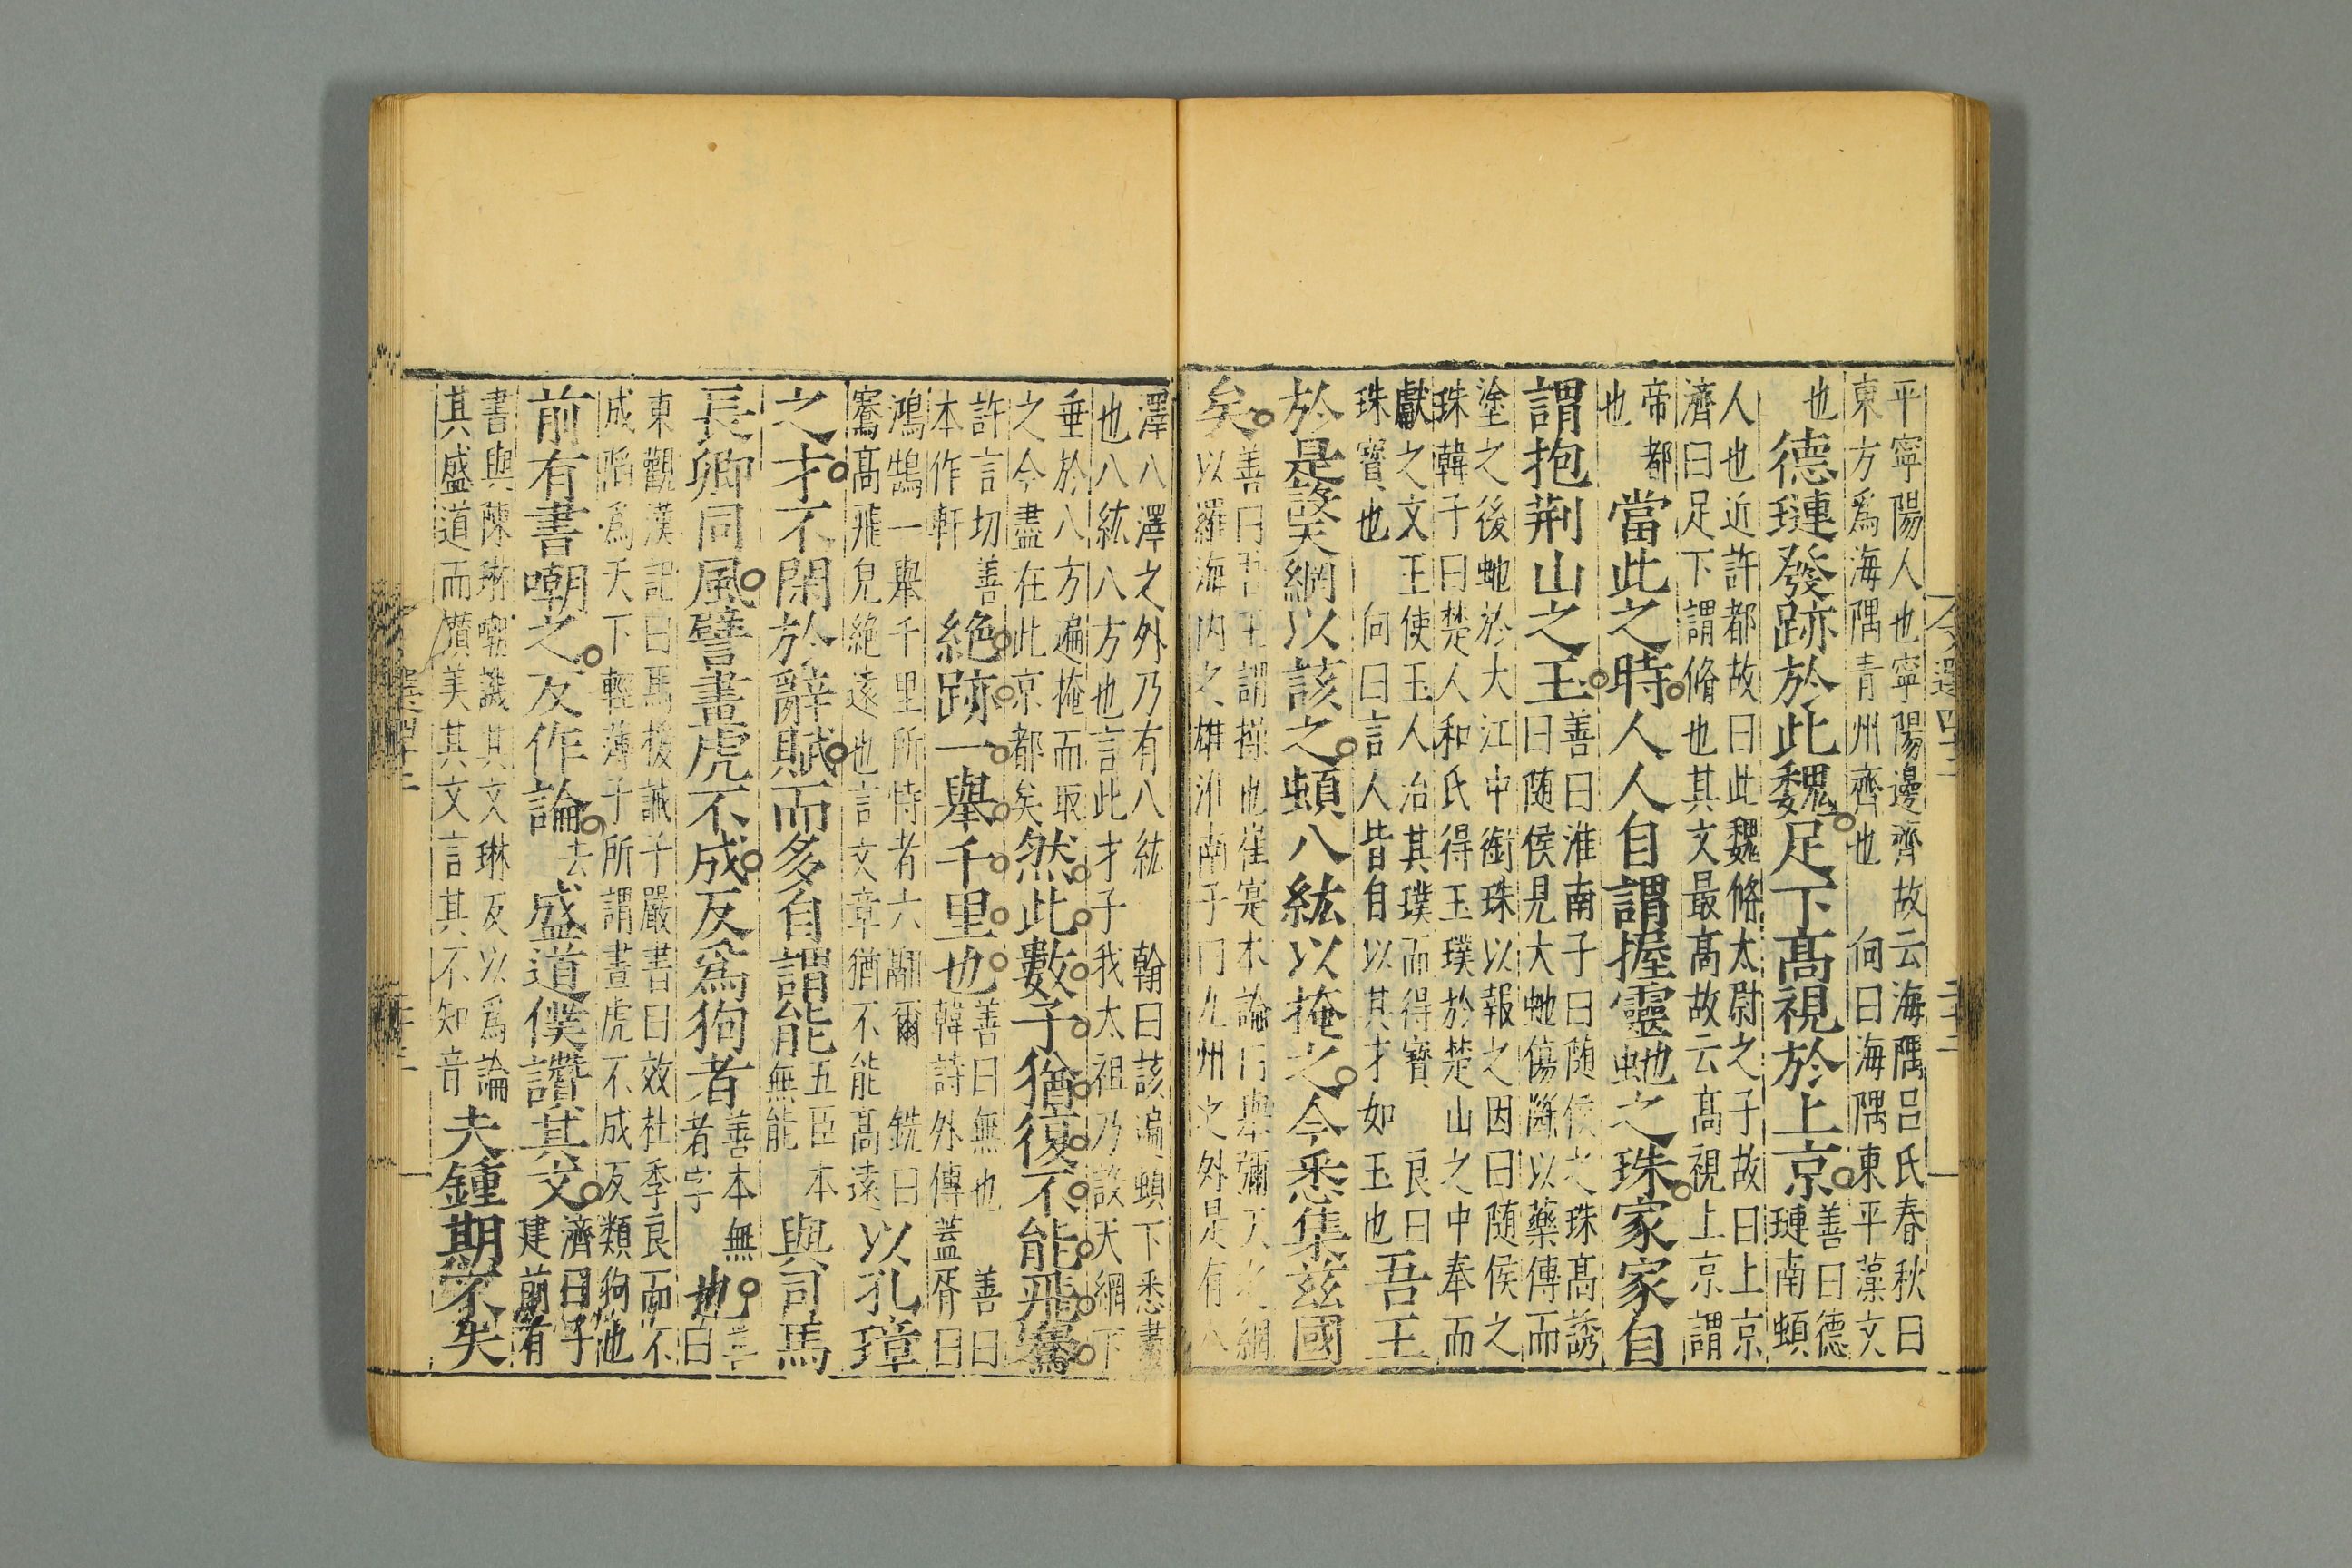 平寧陽人也寧陽邊齊故云海隅呂氏春秋曰
東方爲海隅青州齊也 向曰海隅東平藻文
也
德璉發跡於此魏足下高視於上京
善曰德
璉南頓
人也近許都故曰此魏脩太尉之子故曰上京
濟曰足下謂脩也其文最高故云高視上京謂
帝都
也
當此之時人人自謂握靈虵之珠家家自
謂抱荆山之玉
善曰淮南子曰随侯之珠高誘
曰随侯見大虵傷斷以藥傅而
塗之後虵於大江中銜珠以報之因曰随侯之
珠韓子曰楚人和氏得玉璞於楚山之中奉而
獻之文王使玉人治其璞而得寶 良曰
珠寶也 向曰言人皆自以其才如玉也
吾王
於是設天網以該之頓八紘以掩之今悉集茲國
矣
善曰吾王謂操也崔寔本論曰舉彌天之網
以羅海内之雄淮南子曰九州之外是有八
澤八澤之外乃有八紘 翰曰該遍頓下悉盡
也八紘八方也言此才子我太祖乃設天網下
垂於八方遍掩而取
之今盡在此京都矣
然此數子猶復不能飛騫
許言切善
本作軒
絶跡一舉千里也
善曰無也 善曰
韓詩外傳蓋胥曰
鴻鵠一舉千里所恃者六翮爾 銑曰
騫高飛皃絶遠也言文章猶不能高遠
以孔璋
之才不閑於辭賦而多自謂能
五臣本
無能
與司馬
長卿同風譬畫虎不成反爲狗者
善本無
者字
也
東觀漢記曰馬援誡子嚴書曰效杜季良而不
成䧟爲天下輕薄子所謂畫虎不成反類狗也
前有書嘲之反作論
去
盛道僕讚其文
濟曰子
建前有
書與陳琳嘲譏其文琳反以爲論
其盛道而讚美其文言其不知音
夫鍾期不失